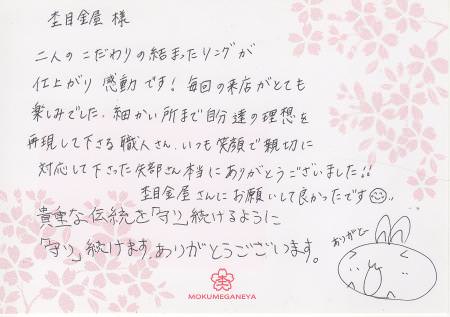 杢目金屋 様
二人のこだわりの結まったリングが
仕上がり感動です！毎回の来店がとても
楽しみでした。細かい所まで自分達の理想を
再現して下さる職人さん、いつも笑顔で親切に
対応して下さった矢部さん本当にありがとうございました!!
杢目金屋さんにお願いして良かったです
貴重な伝統を「守り」続けるように
「守り」続けます。ありがとうございます。
ありがと〜
MOKUMEGANEYA